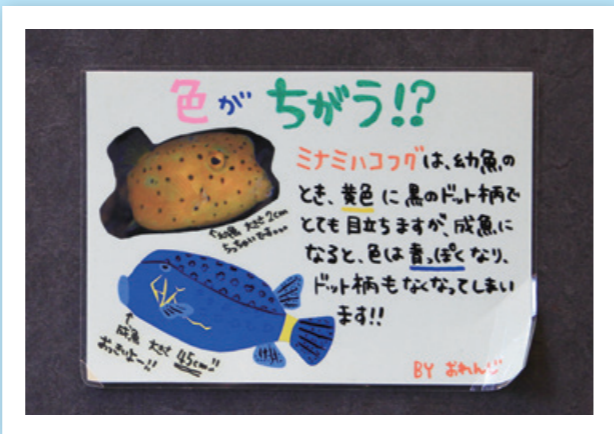 色がちがう!?
ミナミハコフグは、幼魚の
とき、黄色に黒のドット柄で
とても目立ちますが、成魚に
なると、色は青っぽくなり、
ドット柄もなくなってしまい
ます!!
↑幼魚 大きさ2cm
ちっちゃいです...
↑
成魚 大きさ 45cm!!
おっきいよ〜!!
BY おれんじ